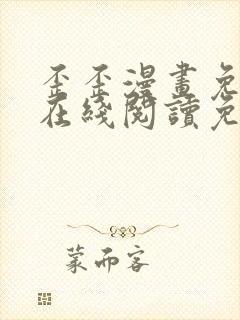 歪歪漫畫免
在綫閱讀免
蒙而客